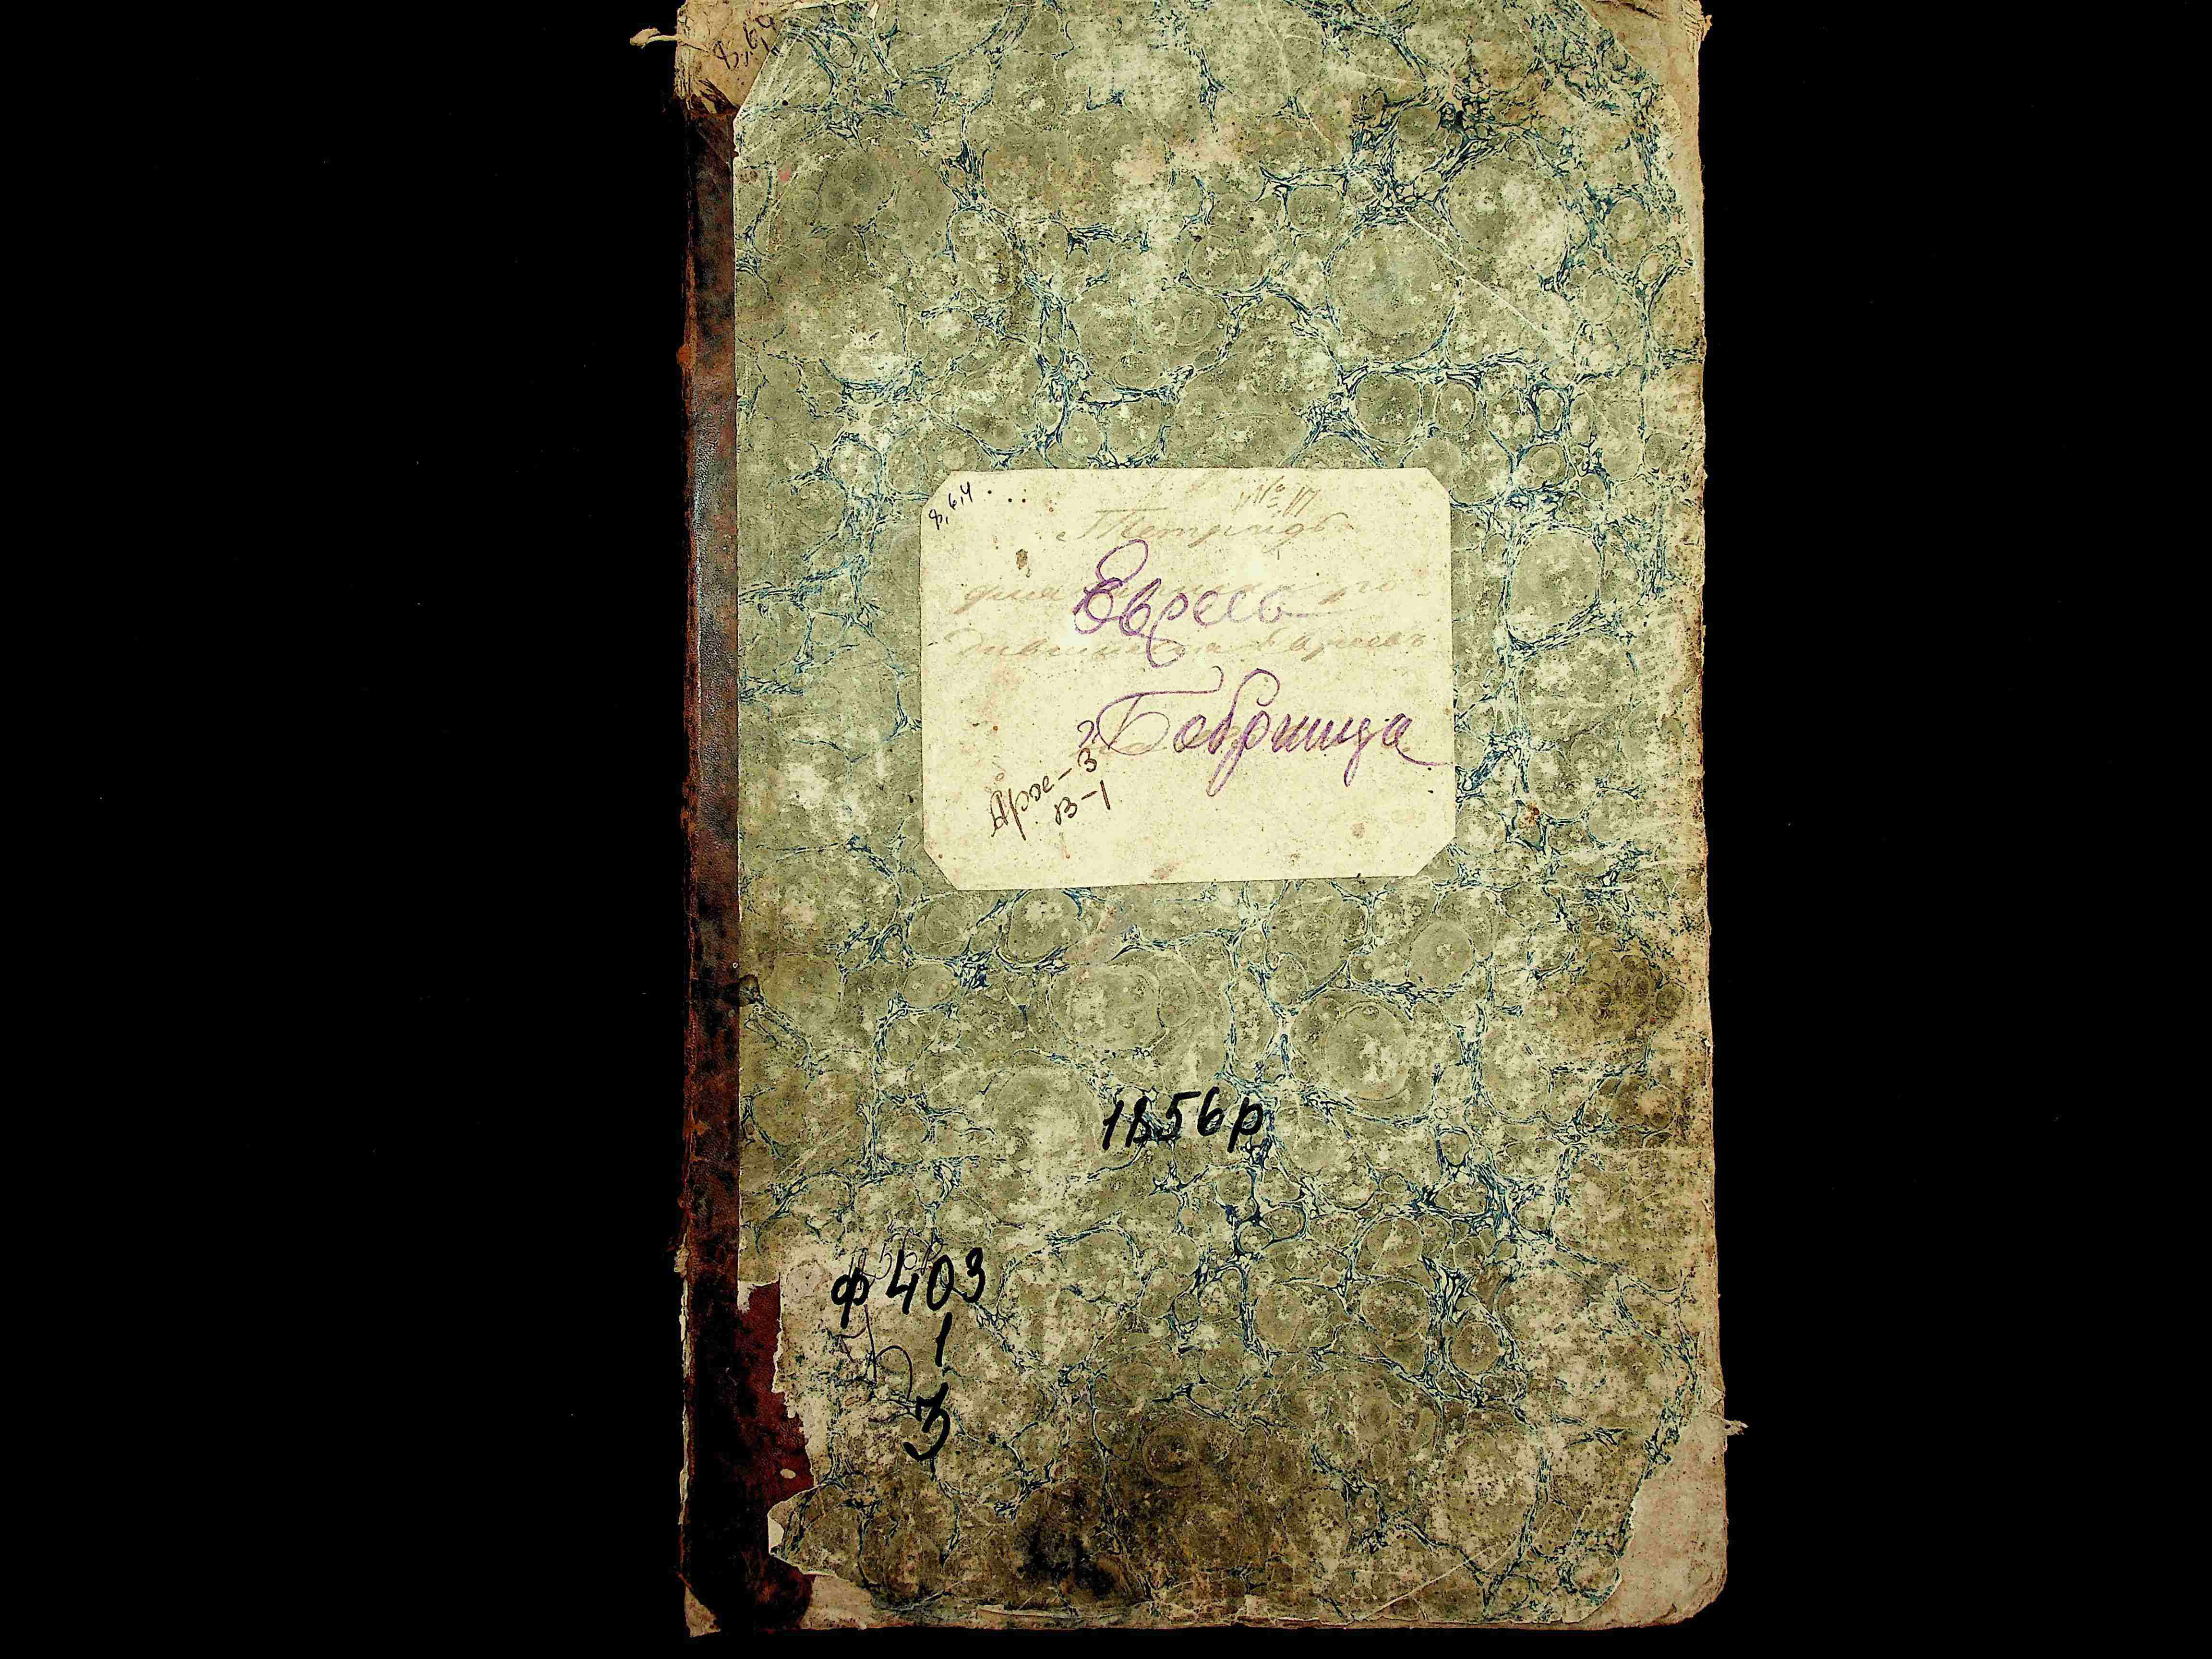 8,64
8,6,4
№ 17
Тетрадь
для
Евреевъ
Евреи
г. Бобринца
Арх-3
В-1
1856р
1856р
ф 403
1
3